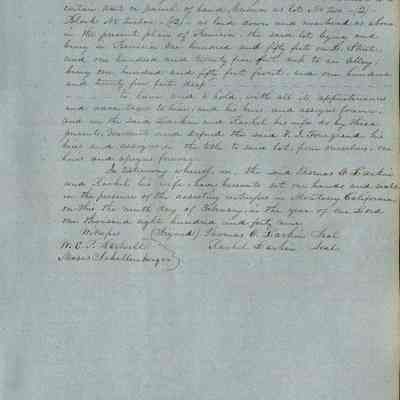 certain tract or parcel of land, known as lot No two - 2 -
Block No twelve - 12 - as laid down and numbered as above
in the present plan of Benicia, the said lot lying and
being in Benicia one hundred and fifty feet on D. Street
and one hundred and twenty five feet up to an alley,
being one hundred and fifty feet front, and one hundred
and twenty five feet deep
To have and to hold, with all its appurtenances
and advantages to him, and his heirs and assigns forever.
and we the said Larkin and Rachel his wife do by these
presents, warrant and defend the said
heirs and assigns in the title to said lot, from ourselves, our
heirs and assigns forever.
In testimony whereof we, the said Thomas O. Larkin
and Rachel his wife, have hereunto set our hands and seals
in the presence of the assisting witnesses in Monterey California
on this the ninth day of February, in the year of our Lord
one thousand eight hundred and forty nine
Witness (Signed) Thomas O. Larkin Seal
W. E. P. Hartnell Rachel Larkin Seal
Moses Schallenberger